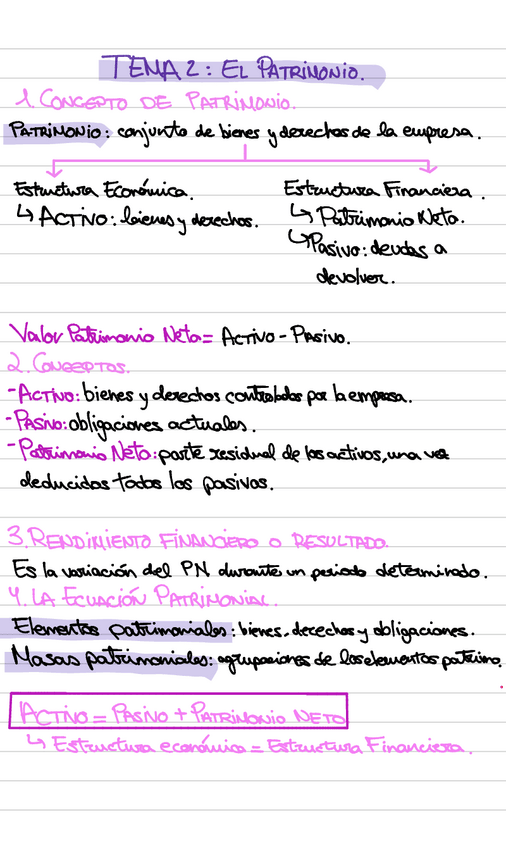 TEMA 2: EL PATRIMONIO.
1. CONCEPTO DE PATRIMONIO.
PATRIMONIO: conjunto de bienes y derechos de la empresa.
Estructura Económica. Estructura Financiera.
↳ ACTIVO: bienes y derechos. ↳ Patrimonio Neto.
↳ Pasivo: deudas a
devolver.
Valor Patrimonio Neto = ACTIVO - PASIVO.
2. CONCEPTOS.
- ACTIVO: bienes y derechos controlados por la empresa.
- PASIVO: obligaciones actuales.
- Patrimonio Neto: parte residual de los activos, una vez
deducidos todos los pasivos.
3. RENDIMIENTO FINANCIERO O RESULTADO.
Es la variación del PN durante un periodo determinado.
4. LA ECUACIÓN PATRIMONIAL.
Elementos patrimoniales: bienes, derechos y obligaciones.
Masas patrimoniales: agrupaciones de los elementos patrimo.
ACTIVO = PASIVO + PATRIMONIO NETO
↳ Estructura económica = Estructura Financiera.